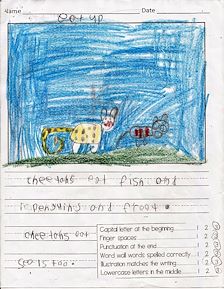 Name Date
cheetahs eat fish and
penguins and froot.
cheetahs eat
seals too.
Capital letter at the beginning 1 2 3
Finger spaces 1 2 3
Punctuation at the end 1 2 3
Word wall words spelled correctly 1 2 3
Illustration matches the writing 1 2 3
Lowercase letters in the middle 1 2 3